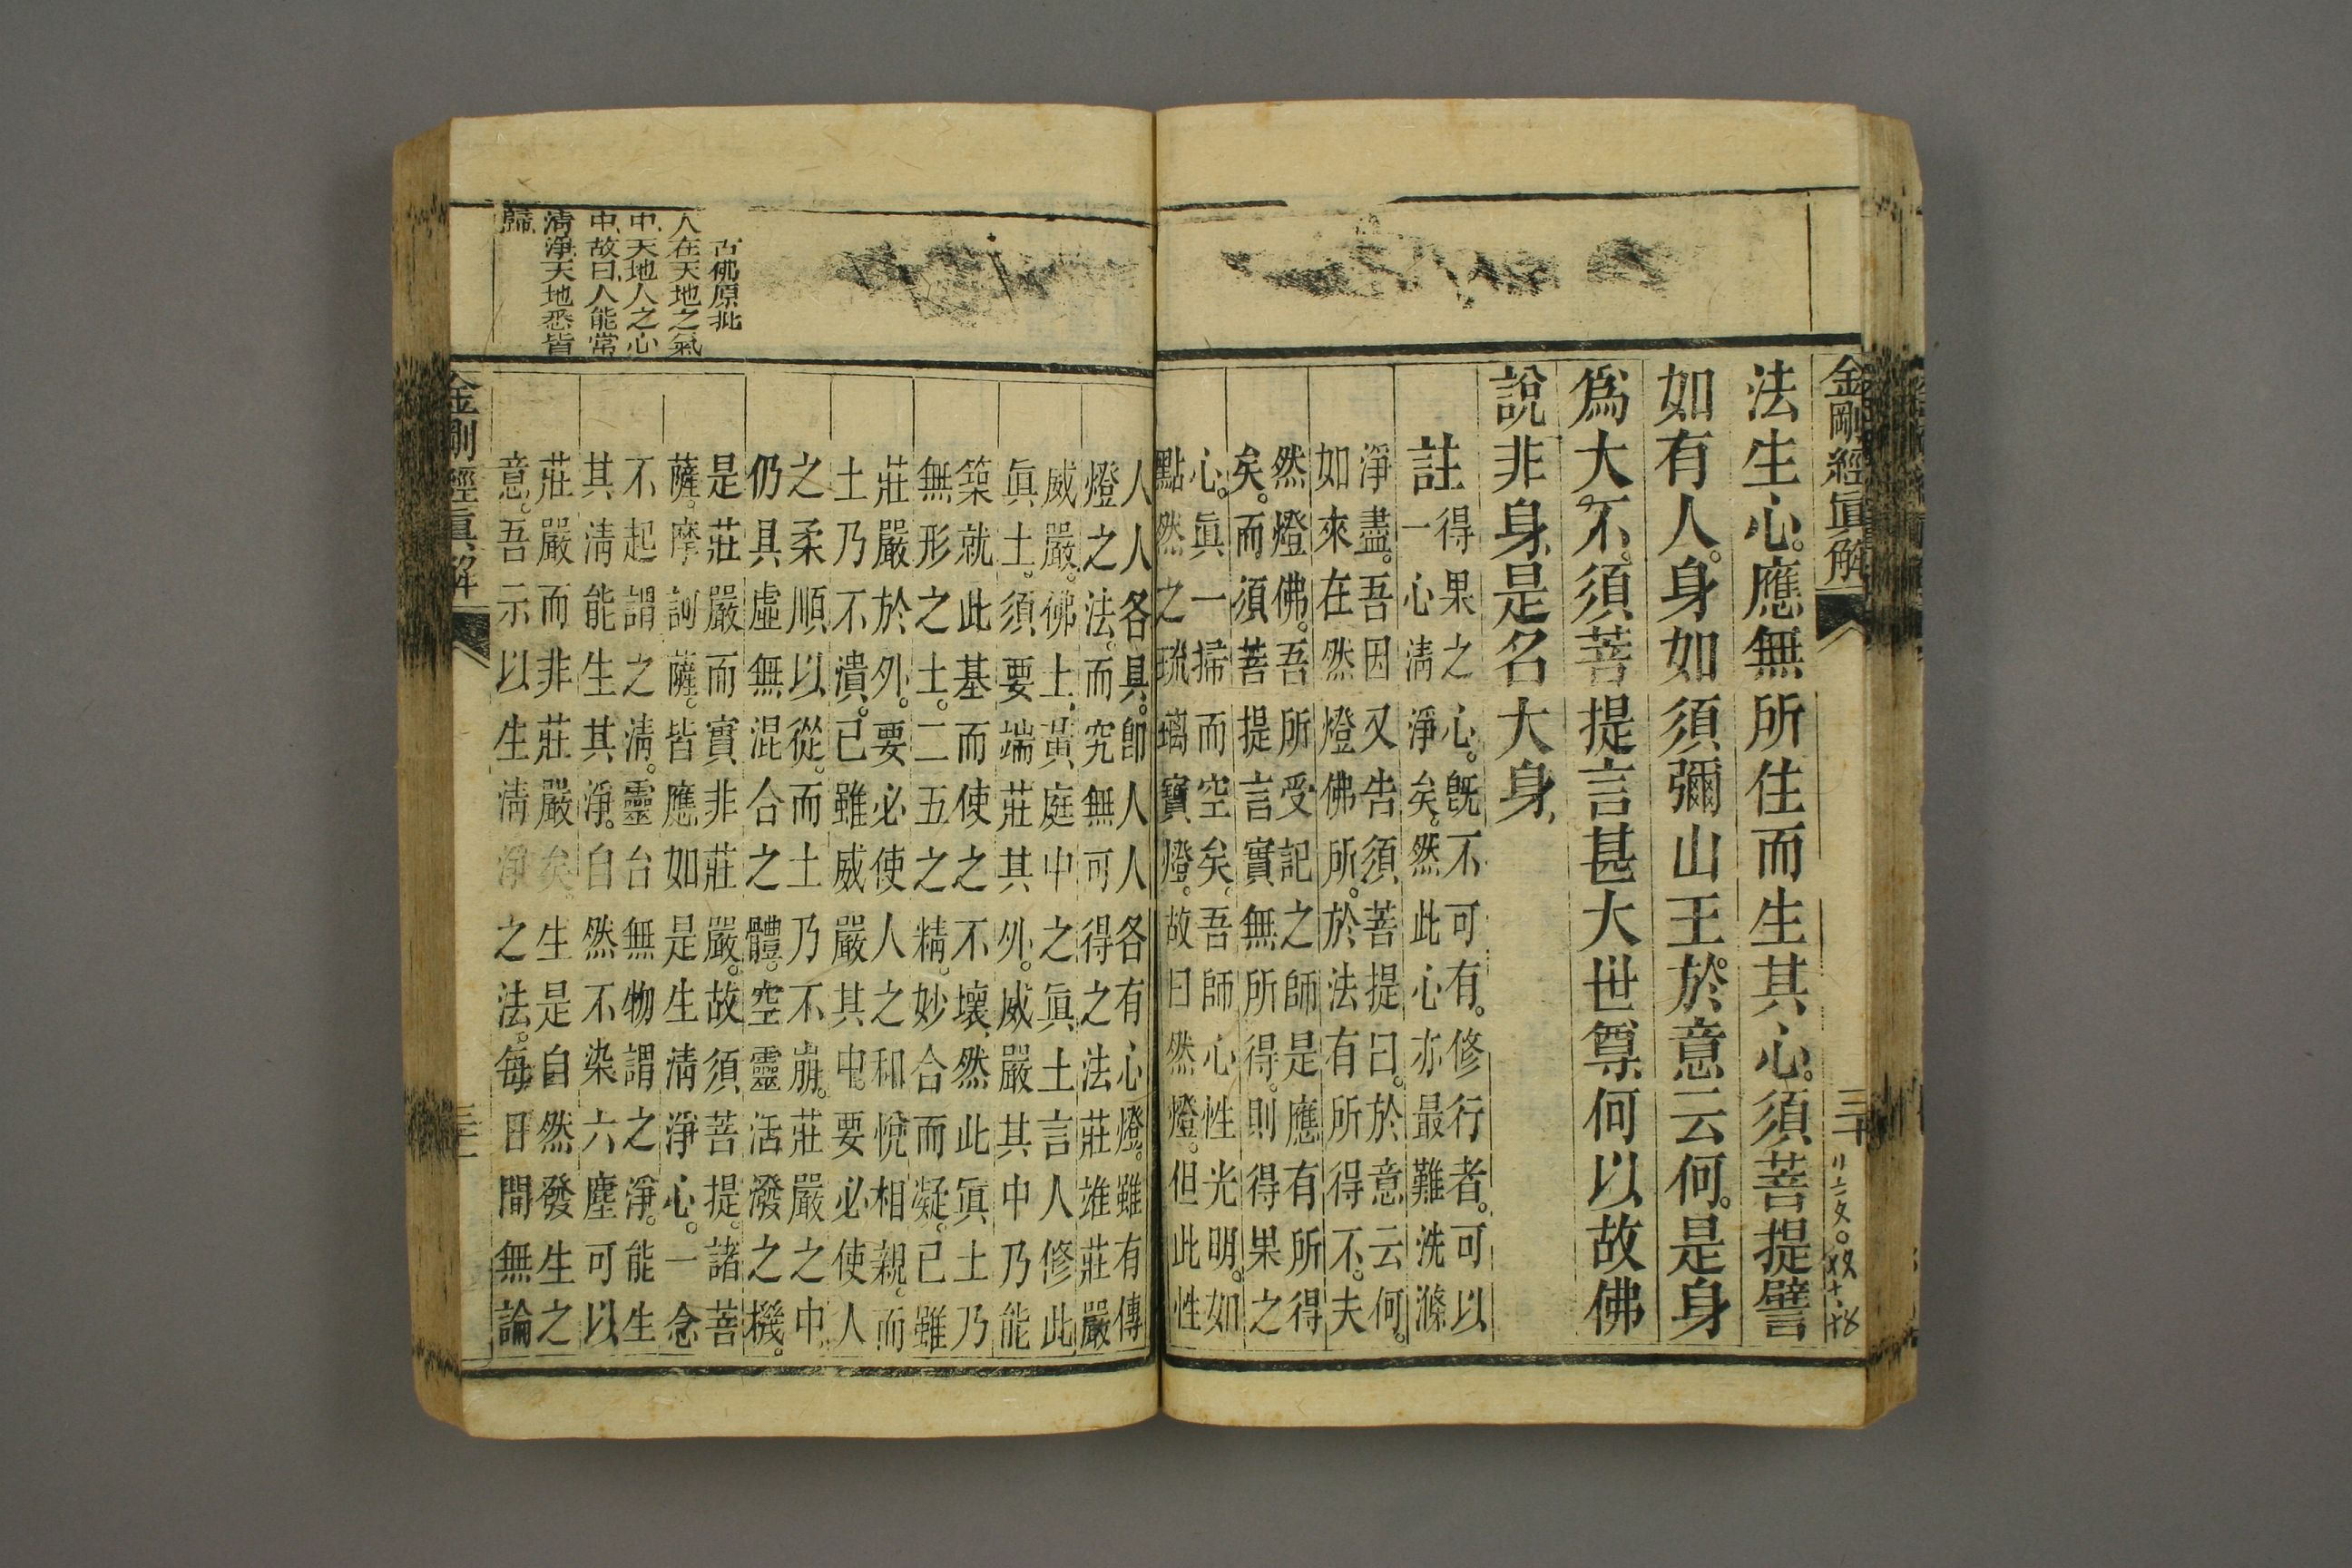 金剛經眞解
三十
法生心。應無所住而生其心。須菩提譬
如有人。身如須彌山王。於意云何。是身
爲大不。須菩提言甚大世尊何以故佛
說非身、是名大身、
註
得果之心。旣不可有。修行者。可以
一心清淨矣。然此心亦最難洗滌
淨盡。吾因又告須菩提曰。於意云何。
如來在然燈佛所。於法有所得不。夫
然燈佛。吾所受記之師是應有所得
矣。而須菩提言實無所得。則得果之
心。眞一掃而空矣。吾師心性光明。如
點然之琉璃寶燈。故曰然燈。但此性
人人各具。卽人人各有心燈。雖有傳
燈之法。而究無可得之法莊誰莊嚴
威嚴。佛土。黃庭中之眞土言人修此
眞土。須要端莊其外。威嚴其中乃能
築就此基而使之不壞、然此眞土乃
無形之土。二五之精。妙合而凝。已雖
莊嚴於外。要必使人之和悅相親。而
土乃不潰。已雖威嚴其中。要必使人
之柔順以從。而土乃不崩。莊嚴之中
仍具虛無混合之體。空靈活潑之機。
是莊嚴而實非莊嚴。故須菩提。諸菩
薩。摩訶薩。皆應如是生清淨心。一念
不起謂之清。靈台無物謂之淨。能生
其清能生其淨。自然不染六塵可以
莊嚴而非莊嚴矣。生是自然發生之
意。吾示以生清淨之法。每日間無論
古佛原批
人在天地之氣
中、天地人之心
中、故曰、人能常
清淨、天地悉皆
歸、
金剛經眞解